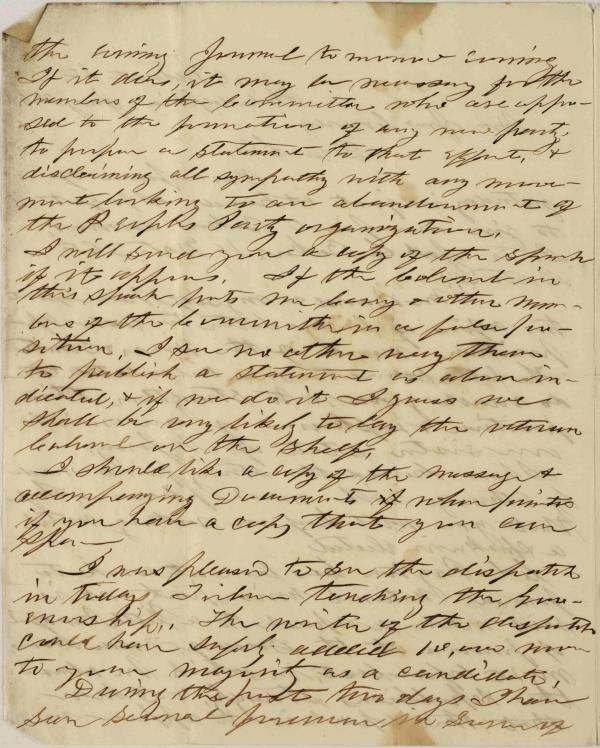 the evening Journal to morrow evening
If it does, it may be necessary for the
members of the Committee who are oppo-
sed to the formation of any new party,
to prepare a statement to that effect, &
disclaiming all sympathy with any move-
ment looking to an abandonment of
the Peoples Party organization.
I will send you a copy of the speech
if it appears. If the Colonel in
this speech puts me & other mem-
bers of the Committee in a false po-
sition, I see no other way than
to publish a statement as above in-
dicated, & if we do it I guess we
shall be very likely to lay the veteran
Colonel on the shelf.
I should like a copy of the message &
accompanying Documents when printed
if you have a copy that you can
spare—
I was pleased to see the dispatch
in todays Tribune touching the Gov-
ernorship. The writer of the dispatch
could have safely added 10,000 more
to your majority as a candidate.
During the past two days I have
seen several from